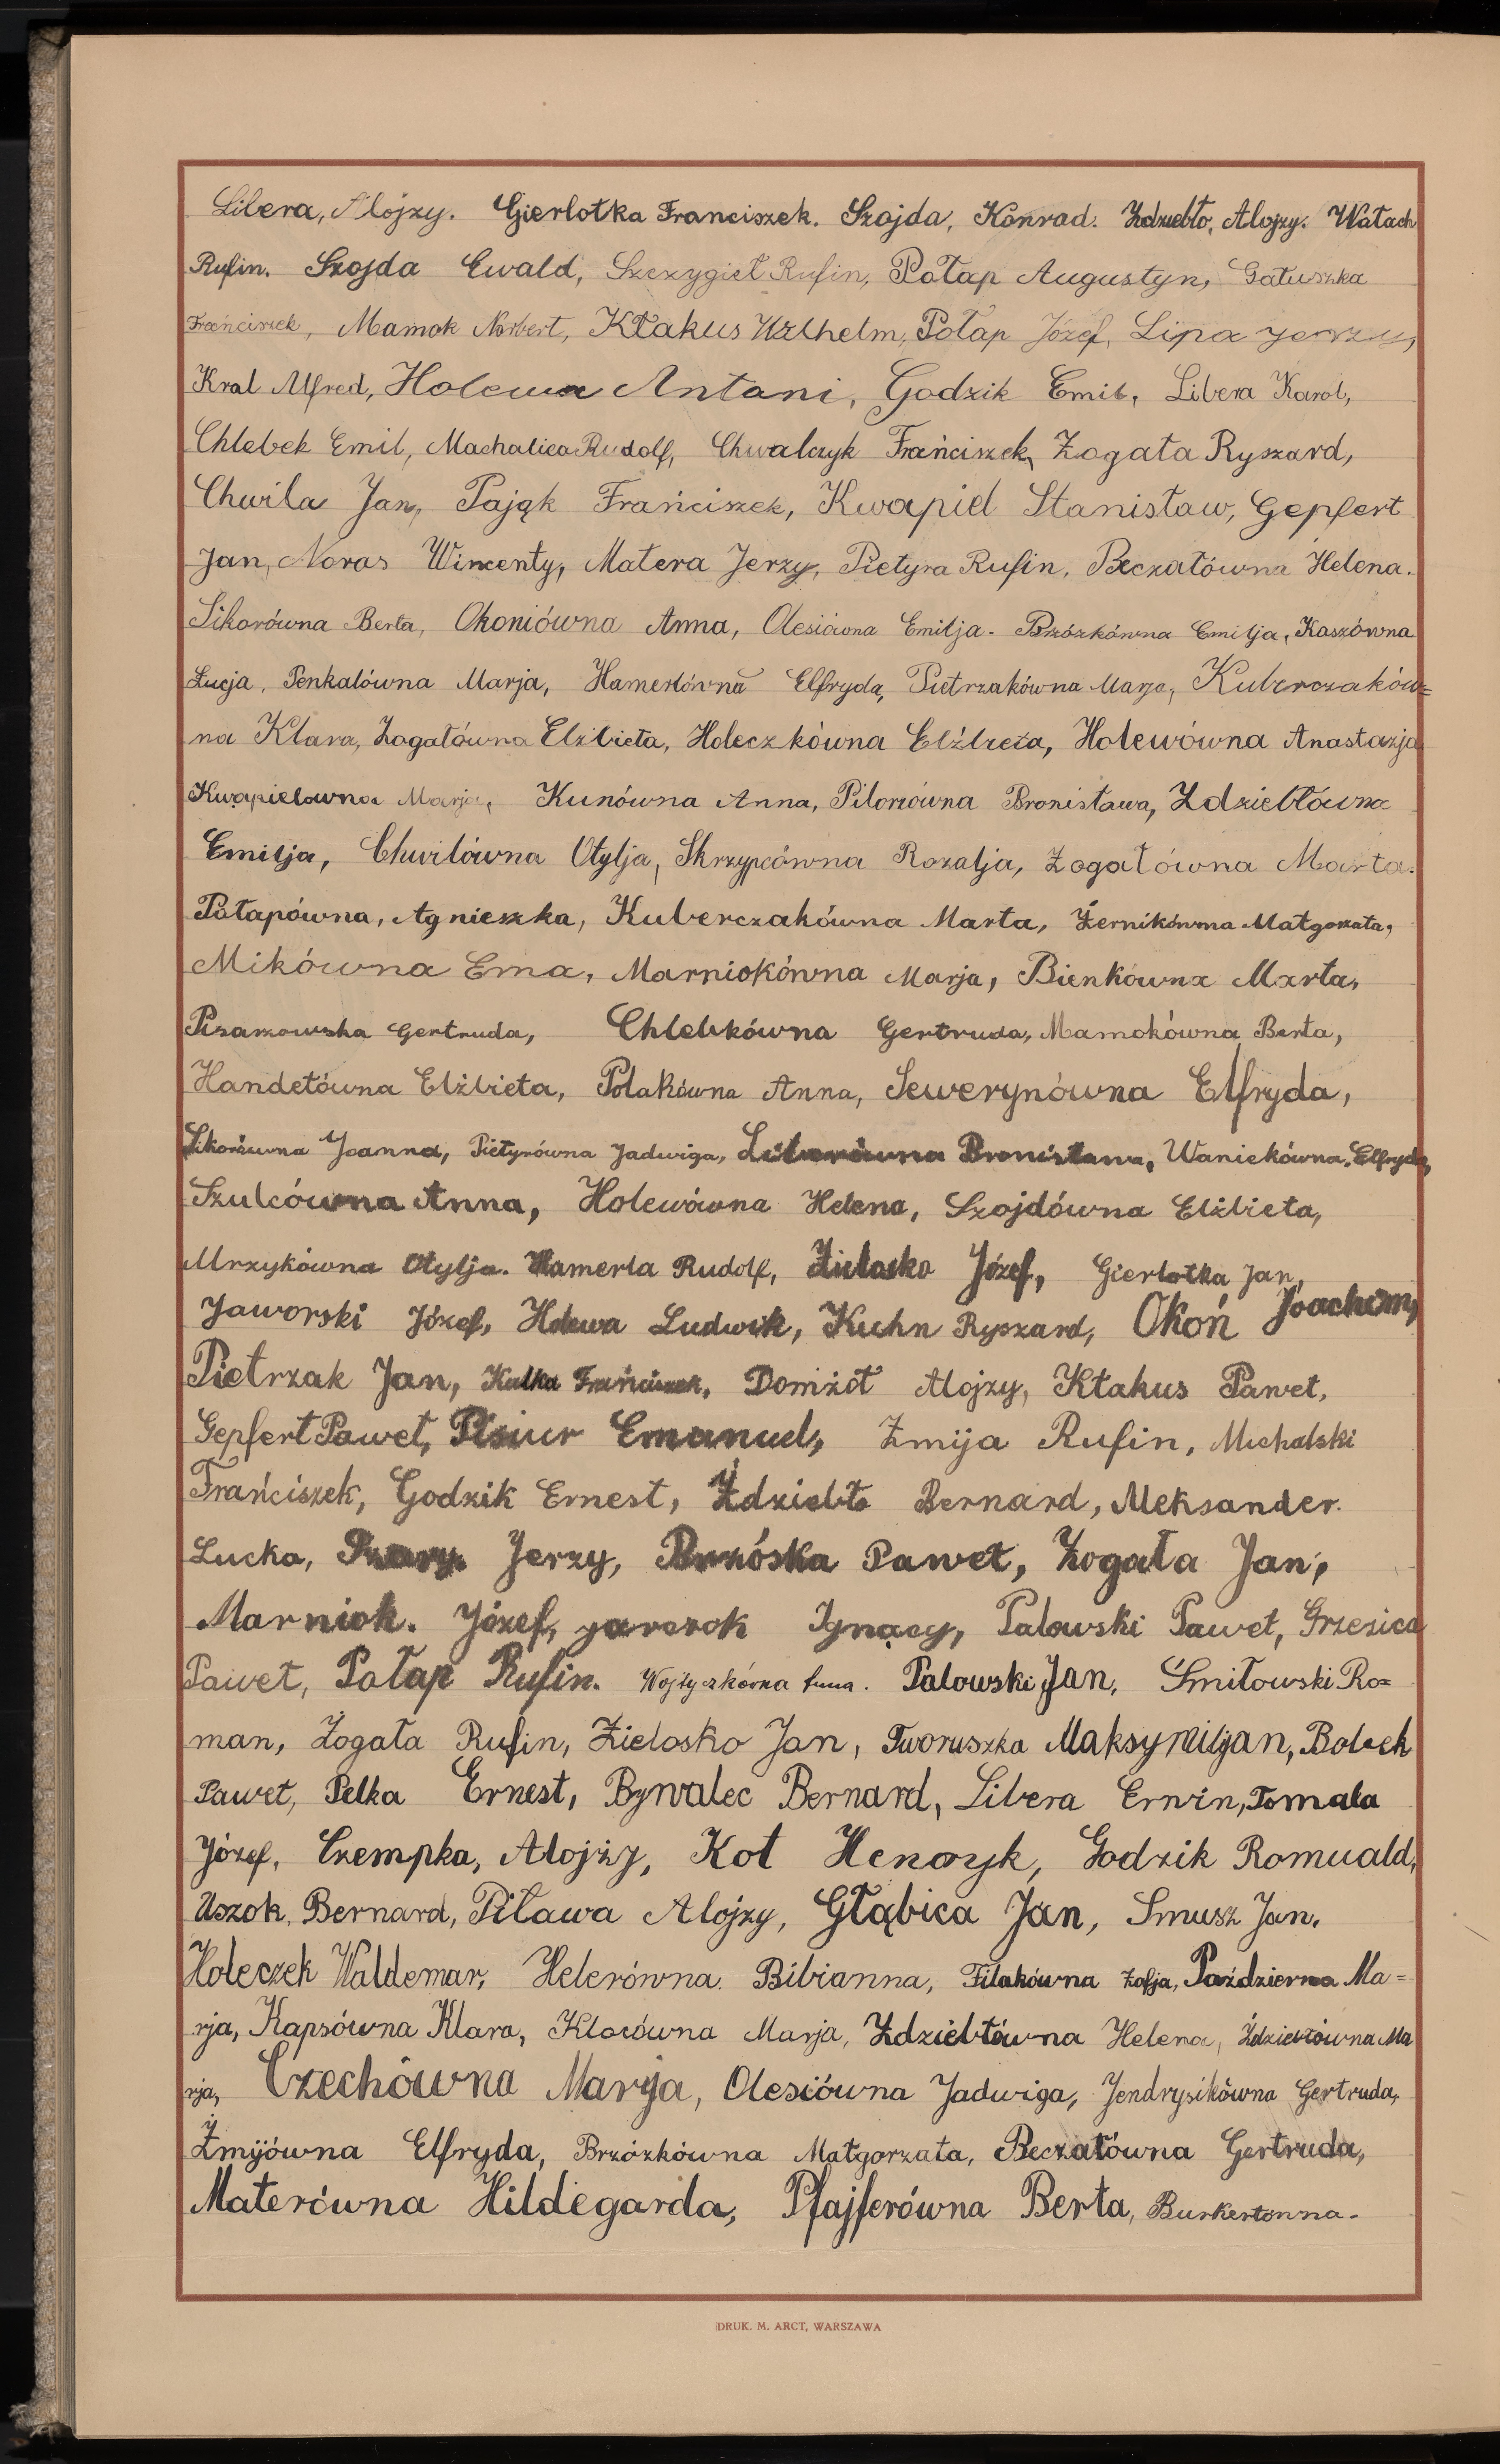 Libera, Alojzy. Gierlotka Franciszek. Szojda, Konrad. Zdziebło, Alojzy. Wałach
Rufin. Szojda Ewald, Szczygieł Rufin, Potap Augustyn, Gałuszka
Frańciszek, Mamok Norbert, Kłakus Wilhelm, Połap Józef, Lipa Jerzy,
Kral Alfred, Holewa Antoni, Godzik Emil, Libera Karol,
Chlebek Emil, Machalica Rudolf, Chwalczyk Frańciszek, Żogała Ryszard,
Chwila Jan, Pająk Frańciszek, Kwapiel Stanisław, Gepfert
Jan, Noras Wincenty, Matera Jerzy, Pietyra Rufin, Beczałówna Helena.
Sikorówna Berta, Okoniówna Anna, Olesiówna Emilja. Brzózkówna Emilja, Kaszówna
Łucja, Penkalówna Marja, Hamerlówna Elfryda, Pietrzakówna Marja, Kuberczaków=
na Klara, Żogałówna Elżbieta, Holeczkówna Elżbieta, Holewówna Anastazja
Kwapielowna Marja, Kunówna Anna, Pilorzówna Bronisława, Zdziebłówna
Emilja, Chwilówna Otylja, Skrzypcówna Rozalja, Żogałówna Marta.
Połapówna, Agnieszka, Kuberczakówna Marta, Żernikówna Małgorzata,
Mikówna Ema, Marniokówna Marja, Bienkówna Marta,
Pisarzowska Gertruda, Chlebkówna Gertruda, Mamokówna Berta,
Handełówna Elżbieta, Polakówna Anna, Sewerynówna Elfryda,
Sikorówna Joanna, Pietyrówna Jadwiga, Liberówna Bronisława, Waniekówna, Elfryda,
Szulcówna Anna, Holewówna Helena, Szojdówna Elżbieta,
Mrzykówna Otylja. Hamerla Rudolf, Zielosko Józef, Gierlotka Jan,
Jaworski Józef, Holewa Ludwik, Kuhn Ryszard, Okoń Joachim,
Pietrzak Jan, Kulka Frańciszek, Domżoł Alojzy, Kłakus Paweł,
Gepfert Paweł, Emanuel, Żmija Rufin, Michalski
Frańciszek, Godzik Ernest, Ździebło Bernard, Aleksander.
Lucka, Jerzy, Brzóska Paweł, Żogała Jan,
Marniok. Józef, Jarczok Ignacy, Palowski Paweł, Grzesica
Paweł, Połap Rufin. Wojtyczkówna Anna. Palowski Jan, Śmiłowski Ro=
man, Żogała Rufin, Zielosko Jan, Tworuszka Maksymiljan, Bolech
Paweł, Pelka Ernest, Bywalec Bernard, Libera Erwin, Tomala
Józef, Czempka, Alojzy, Kot Henryk, Godzik Romuald,
Uszok, Bernard, Piława Alojzy, Głąbica Jan, Smusz Jan.
Holeczek Waldemar, Helerówna. Bibianna, Filakówna Zofja, Październa Ma=
rja, Kapsówna Klara, Klosówna Marja, Zdziebłówna Helena, Zdziebłówna Ma
rja, Czechówna Marja, Olesiówna Jadwiga, Jendrysikówna Gertruda,
Żmijówna Elfryda, Brzózkówna Małgorzata, Beczałówna Gertruda,
Materówna Hildegarda, Pfajferówna Berta, Burkertówna.
DRUK. M. ARCT, WARSZAWA